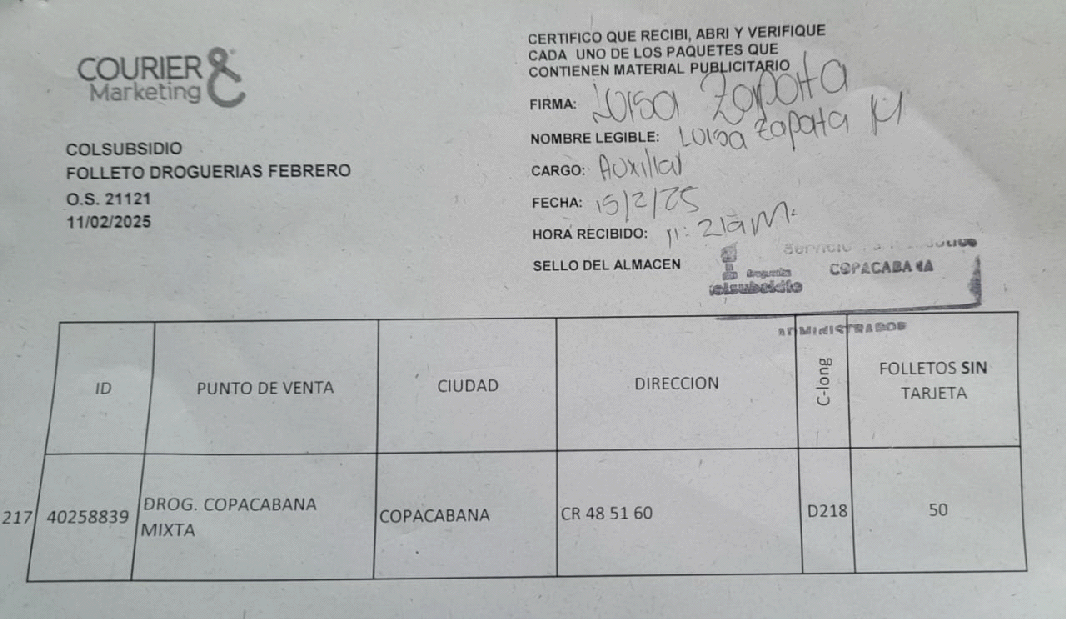 COURIER
Marketing
COLSUBSIDIO
FOLLETO DROGUERIAS FEBRERO
O.S. 21121
11/02/2025
CERTIFICO QUE RECIBI, ABRI Y VERIFIQUE
CADA UNO DE LOS PAQUETES QUE
CONTIENEN MATERIAL PUBLICITARIO
FIRMA: Luisa Zapata
NOMBRE LEGIBLE: Luisa Zapata M
CARGO: Auxiliar
FECHA: 15/2/25
HORA RECIBIDO: 11:21am.
SELLO DEL ALMACEN
Servicio
Droguerías
colsubsidio
COPACABANA
ADMINISTRADOR
ID PUNTO DE VENTA CIUDAD DIRECCION C-long FOLLETOS SIN
TARJETA
217 40258839 DROG. COPACABANA
MIXTA
COPACABANA CR 48 51 60 D218 50